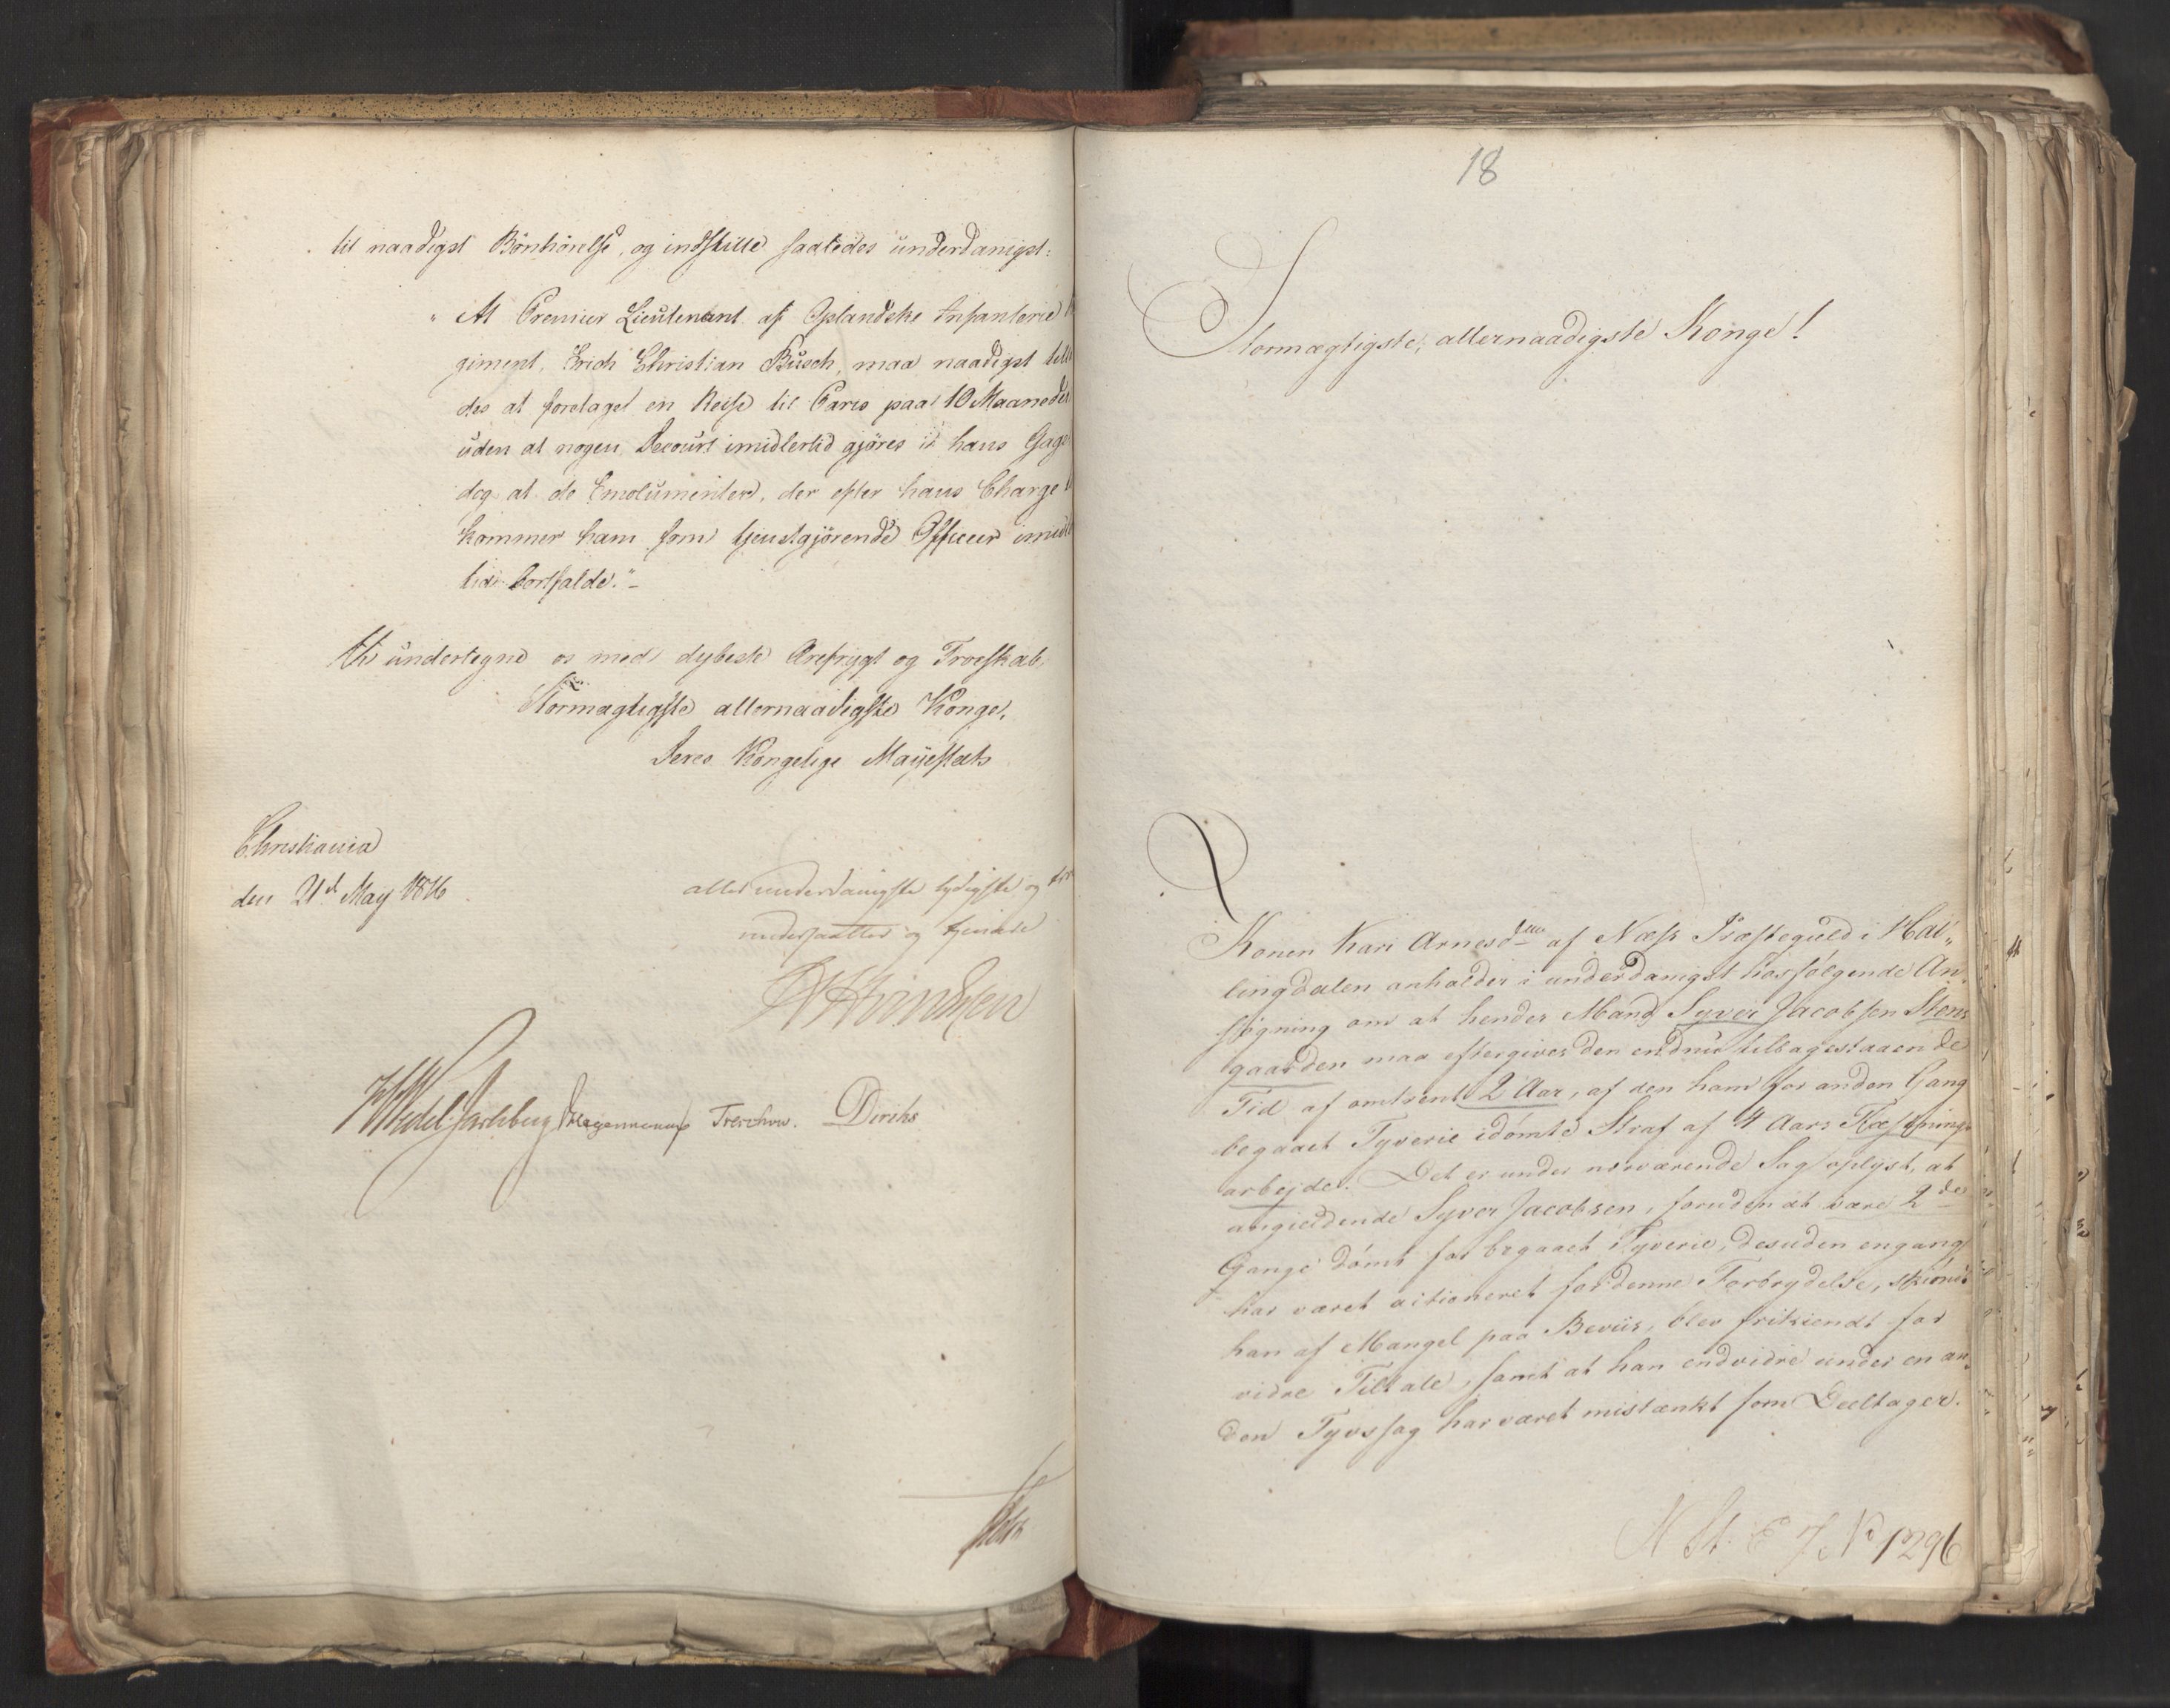 til naadigst Bönhörelse, og indstille saaledes underdanigst:
"At Premier Lieutenant af Oplandske Infanterie
giment, Erich Christian Büsch, maa naadigst till
des at foretaget en Reise til Paris paa 10 Maaneder
uden at nogen Decourt imidlertid gjöres i hans Gage
dog at de Emolumenter, der efter hans Charge
kommer ham som tjenstgjörende Officeer imid
tid bortfalde."-
Vi undertegne os med dybeste Ærefrygt og Troeskab,
Stormægtigste allernaadigste Konge,
Deres Kongelige Majestæts
Christiania
den 21d May 1816
allerunderdanigste lydigste og tro
undersaatter og tjenere
WWedel Jarlsberg Treschow. Diriks
18
Stormægtigste, allernaadigste Konge!
Konen Kari Arnesdtter af Næss Præstegield i Hal„
lingdalen anholder i underdanigst hosfølgende An„
søgning om at hendes Mand Syver Jacobsen Steens
gaarden maa eftergives den endnu tilbagestaaende
Tid af omtrent 2 Aar, af den ham for anden Gang
begaaet Tyverie idømte Straf af 4 Aars Fæstnings
arbejde. Det er under nærværende Sag oplyst, at
angieldende Syver Jacobsen, foruden at være 2de
Gange dømt for begaaet Tyverie, desuden engang
har været actioneret for denne Forbrydelse, skiönt
han af Mangel paa Beviis, blev frikiendt for
vidre Tiltale, samt at han endvidre under en an„
den Tyvssag har været mistænkt som Deeltager.
N St. E 7 No 1296